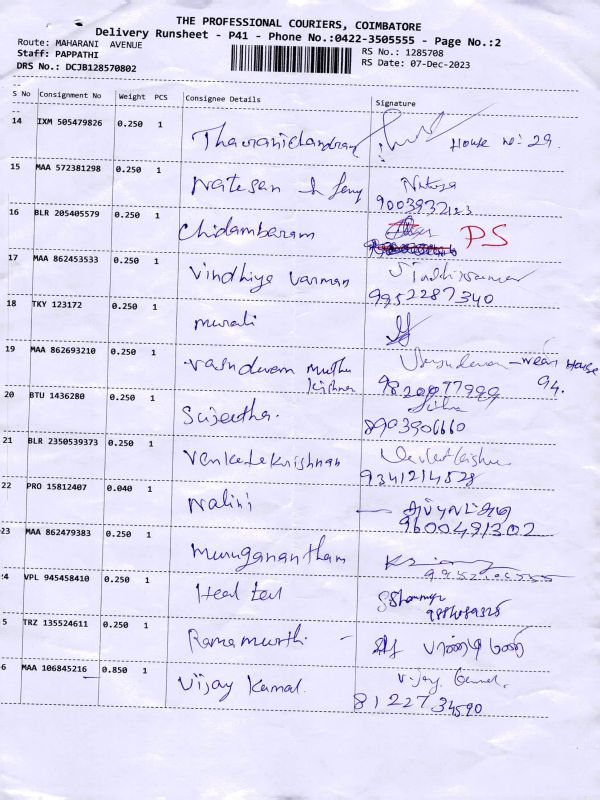 THE PROFESSIONAL COURIERS, COIMBATORE
Delivery Runsheet - P41 - Phone No.:0422-3505555 - Page No.:2
Route: MAHARANI AVENUE RS No.: 1285708
Staff: PAPPATHI RS Date: 07-Dec-2023
DRS No.: DCJB128570802
S No Consignment No Weight PCS Consignee Details Signature
14 IXM 505479826 0.250 1 Tharanichandran House no: 29.
15 MAA 572381298 0.250 1 Natesan
16 BLR 205405579 0.250 1 Chidambaram PS
17 MAA 862453533 0.250 1 Vindhiya Varman
9952287340
18 TKY 123172 0.250 1 Murali
19 MAA 862693210 0.250 1 Vasudevan Muthu House
Kishnan 9820077999 94.
20 BTU 1436280 0.250 1 Sujeetha.
8903906660
21 BLR 2350539373 0.250 1 Venkatakrishnan
9341214528
22 PRO 15812407 0.040 1 Nalini
9600491302
23 MAA 862479383 0.250 1 Muruganantham
24 VPL 945458410 0.250 1
5 TRZ 135524611 0.250 1 Ramamurthi
6 MAA 106845216 0.850 1 Vijay Kamal. Vijay Kamal.
8122734590